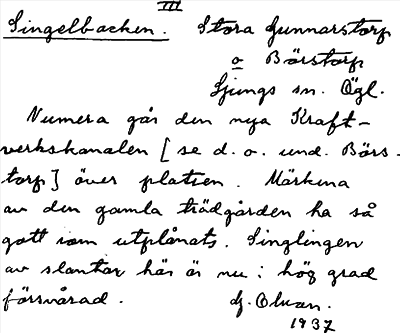 III
Singelbacken. Stora Gunnarstorp
o Börstorp
Ljungs sn. Ögl.
Numera går den nya Kraft-
verkskanalen [se d. o. und. Börs-
torp] över platsen. Märkena
av den gamla trädgården ha så
gott som utplånats. Singlingen
av slantar här är nu i hög grad
försvårad.
1937